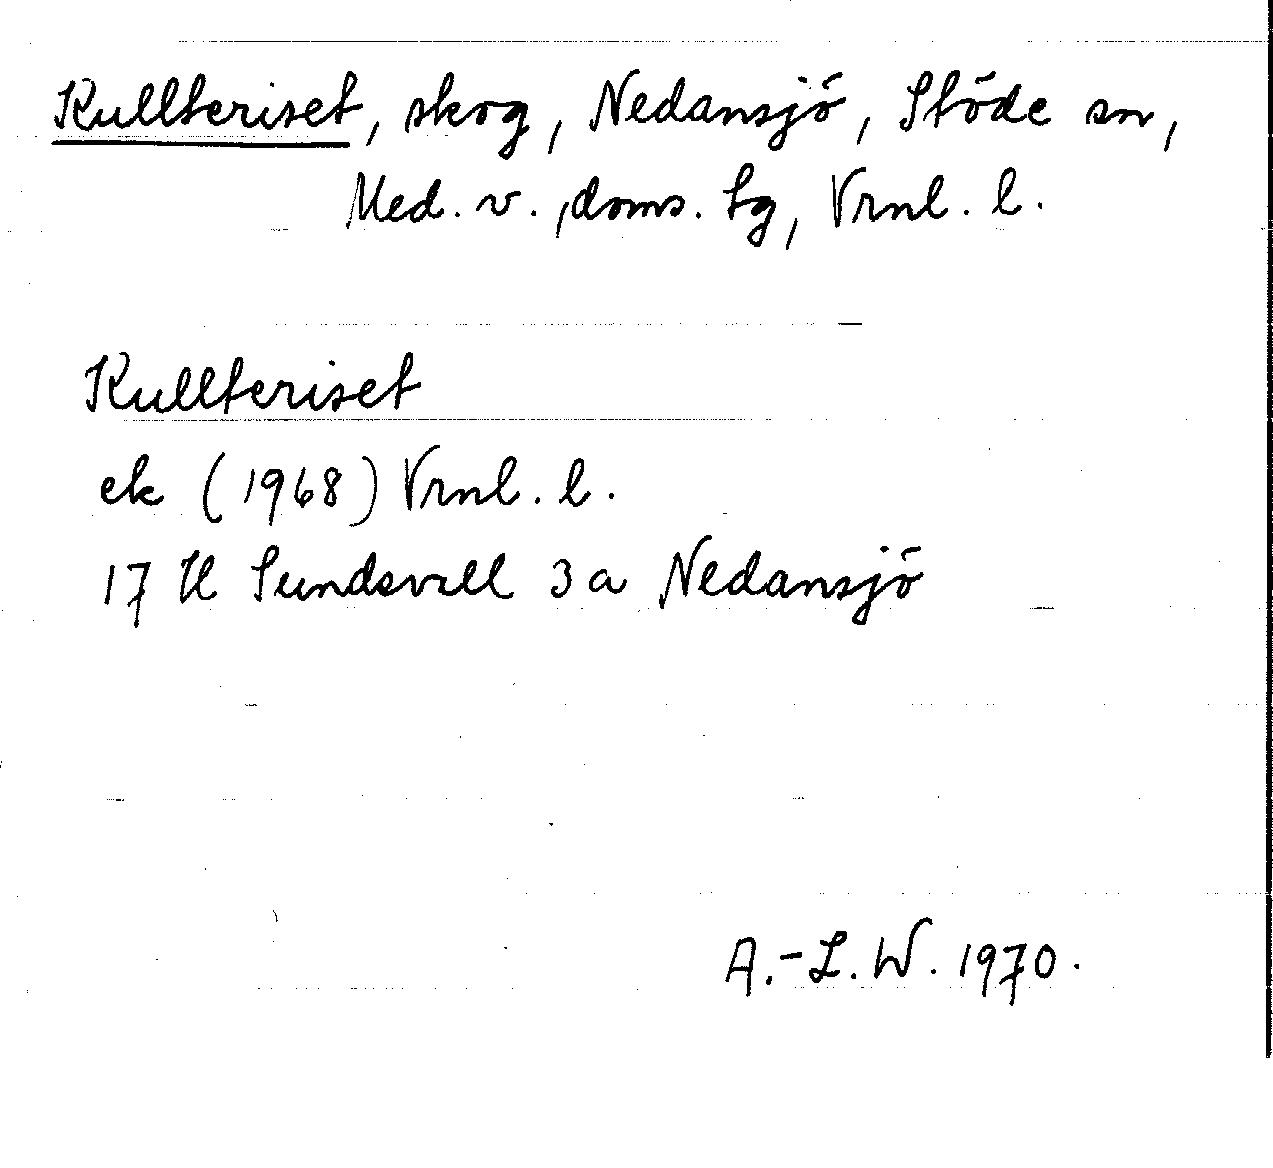 Kullteriset, skog, Nedansjö, Stöde sn,
Med. v., doms. tg, Vrnl. l.
Kullteriset
ek (1968) Vrnl. l.
17 H Sundsvall 3 a Nedansjö
A.-L. W. 1970.